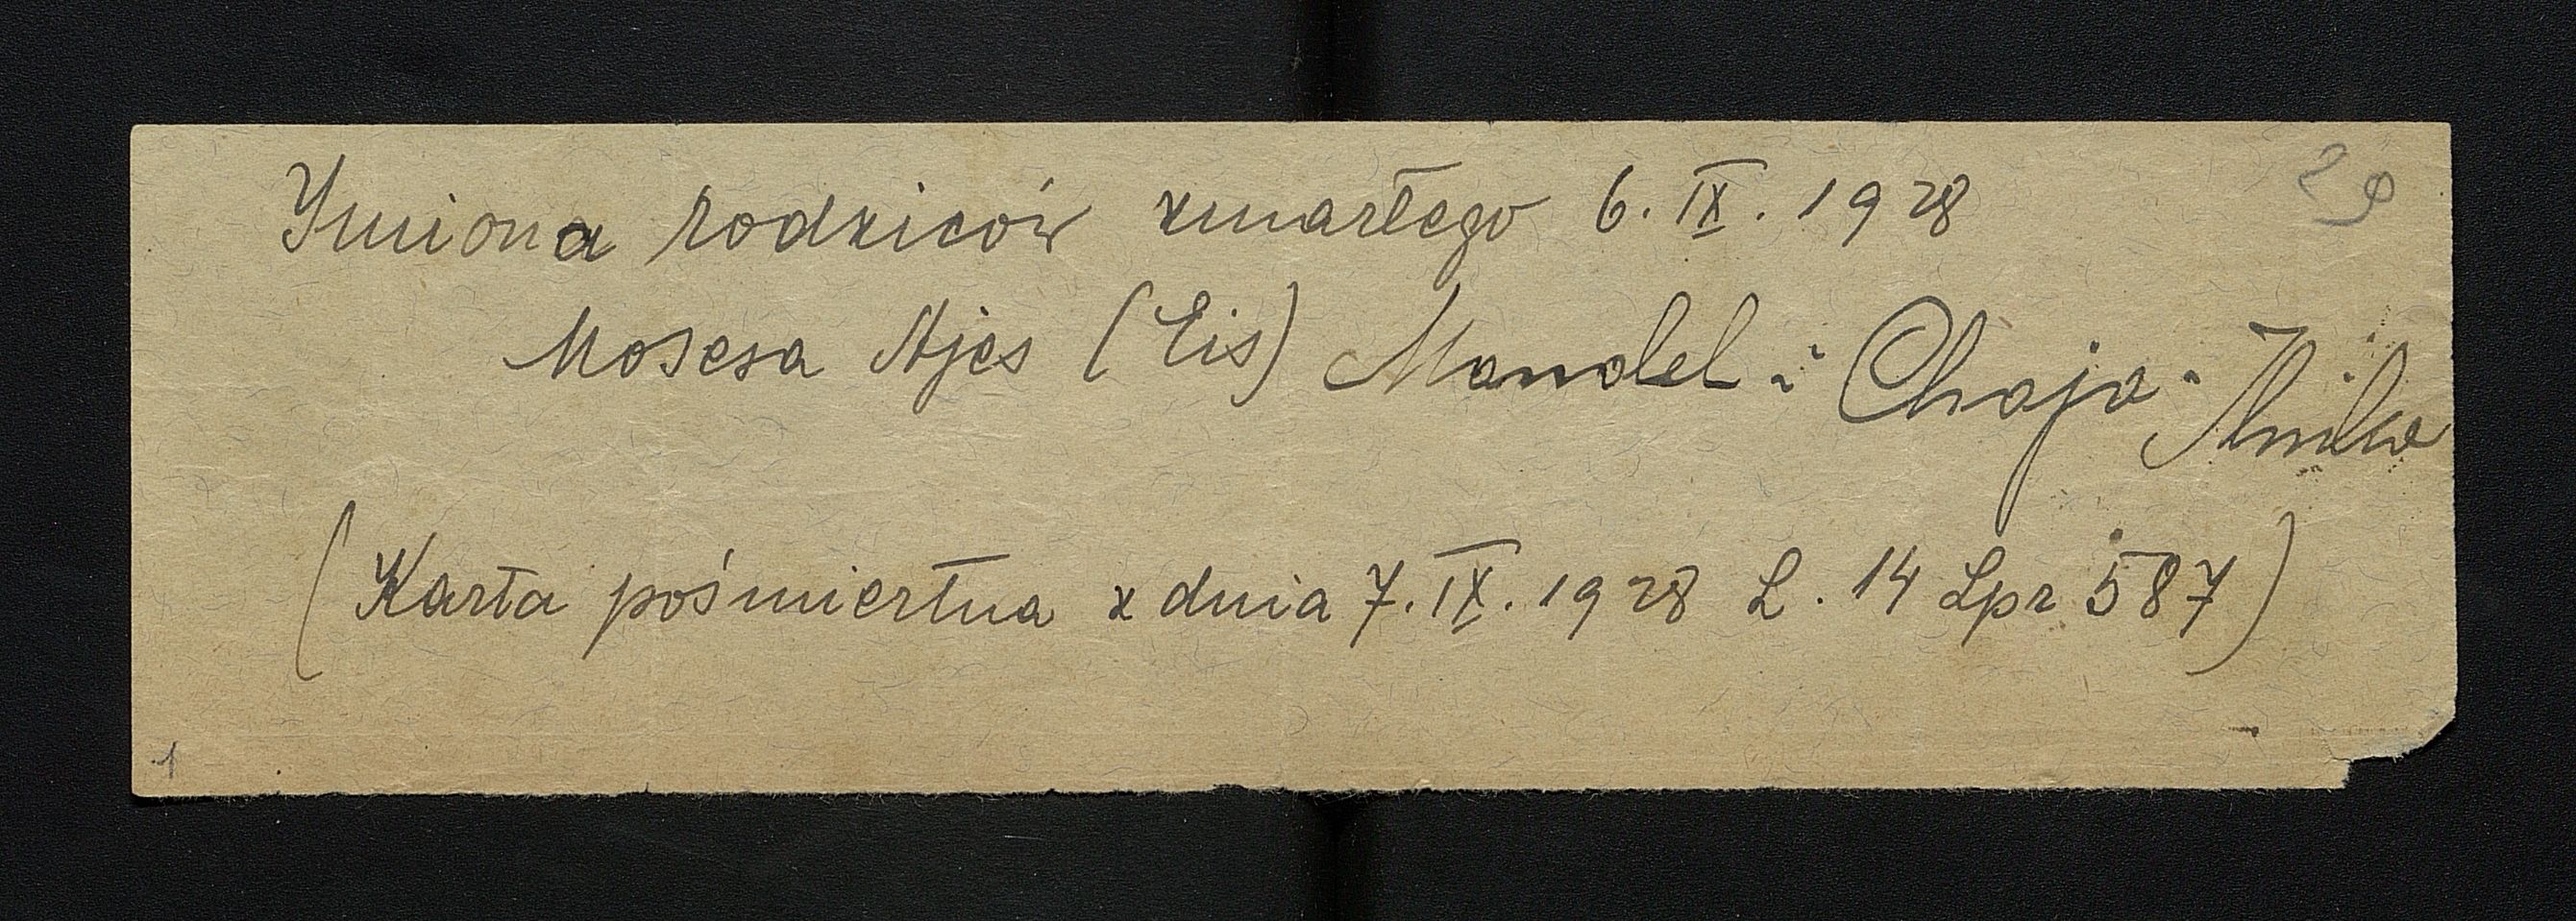 Imiona rodziców zmarłego 6. IX. 1928
29
Mosesa Ajes (Eis) Mandel i Chaja
(Karta pośmiertna z dnia 7. IX. 1928 L. 14 Lpr 587)
1